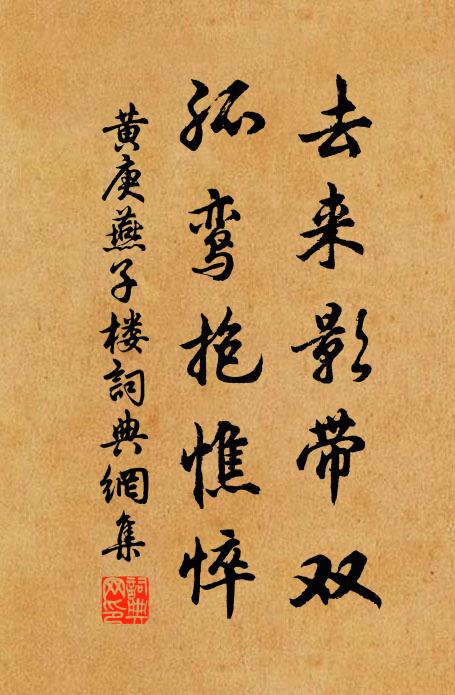 去来影带双
孤鸾抱憔悴
黄庚燕子楼詞典網集
詞典网印